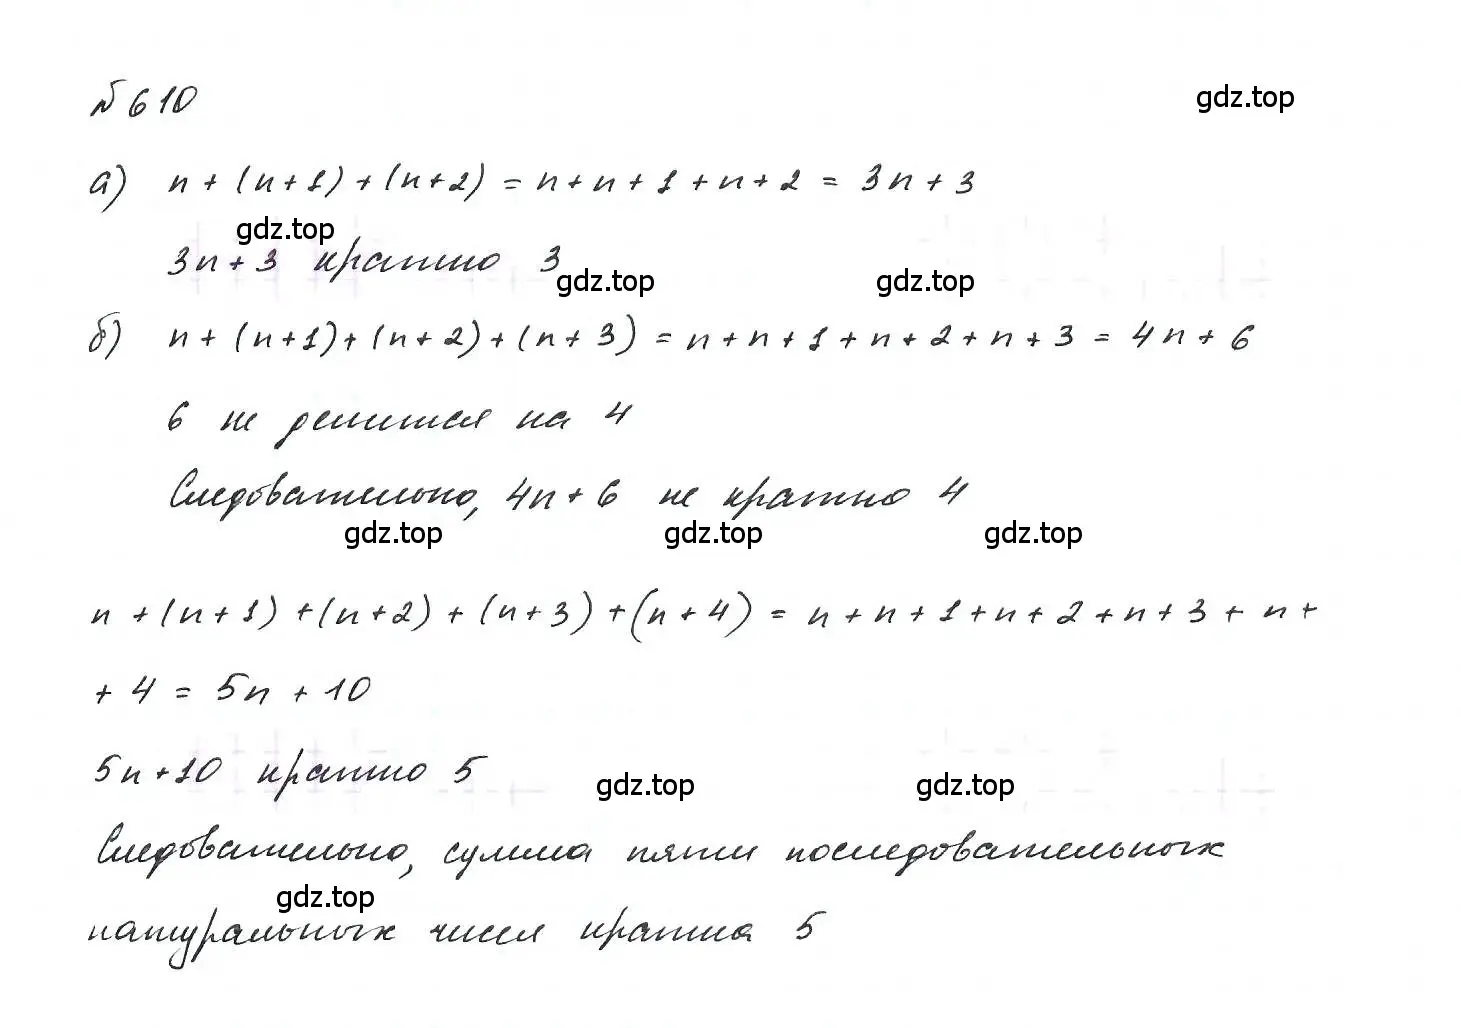 № 610
gdz.top
а) n + (n+1) + (n+2) = n+n+1+n+2 = 3n+3
gdz.top
3n+3 кратно 3
gdz.top gdz.top
б) n + (n+1) + (n+2) + (n+3) = n+n+1+n+2+n+3 = 4n+6
6 не делится на 4
Следовательно, 4n+6 не кратно 4
gdz.top gdz.top gdz.top
n + (n+1) + (n+2) + (n+3) + (n+4) = n+n+1+n+2+n+3+n+
+4 = 5n+10
5n+10 кратно 5
gdz.top gdz.top
Следовательно, сумма пяти последовательных
gdz.top
натуральных чисел кратна 5